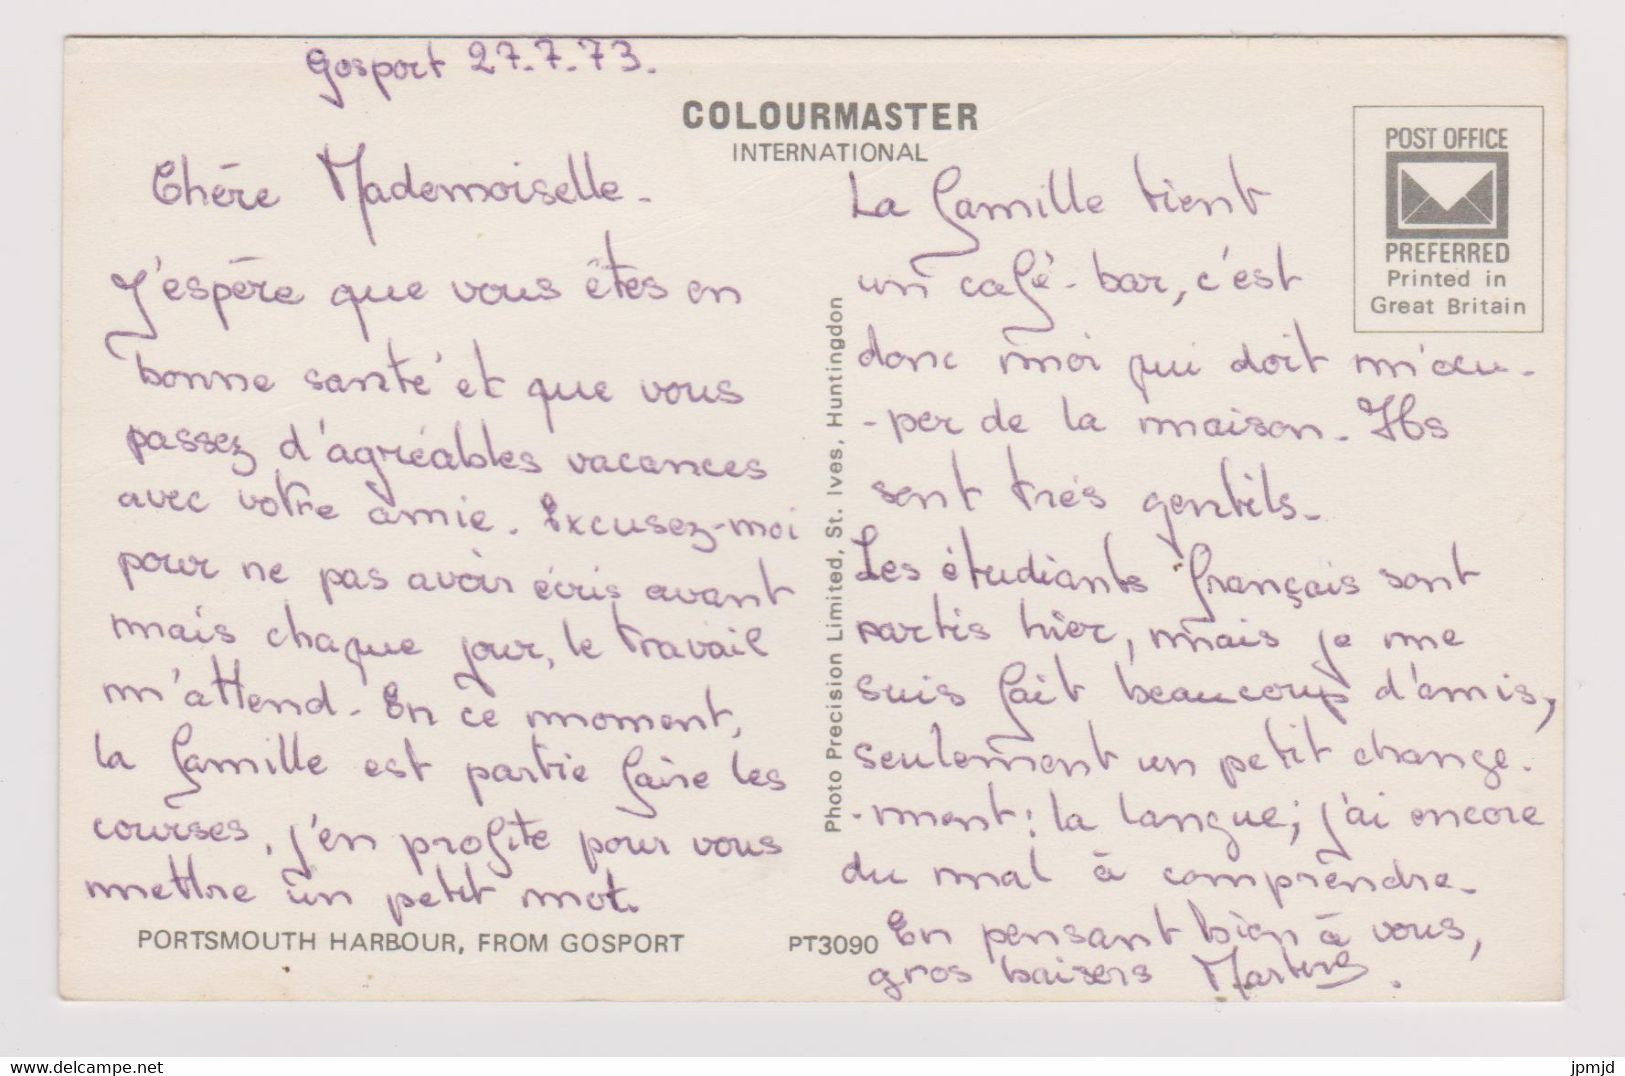 Gosport 27.7.73.
COLOURMASTER
INTERNATIONAL
POST OFFICE
PREFERRED
Printed in
Great Britain
Chère Mademoiselle.
J'espère que vous êtes en
bonne santé et que vous
passez d'agréables vacances
avec votre amie. Excusez-moi
pour ne pas avoir écris avant
mais chaque jour, le travail
m'attend. En ce moment,
la famille est partie faire les
courses, j'en profite pour vous
mettre un petit mot.
Photo Precision Limited, St. Ives, Huntingdon
La famille tient
un café-bar, c'est
donc moi qui doit m'occu-
-per de la maison. Ils
sont très gentils.
Les étudiants français sont
partis hier, mais je me
suis fait beaucoup d'amis,
seulement un petit change-
-ment: la langue; j'ai encore
du mal à comprendre.
En pensant bien à vous,
gros baisers Martine.
PORTSMOUTH HARBOUR, FROM GOSPORT
PT3090
jpmjd